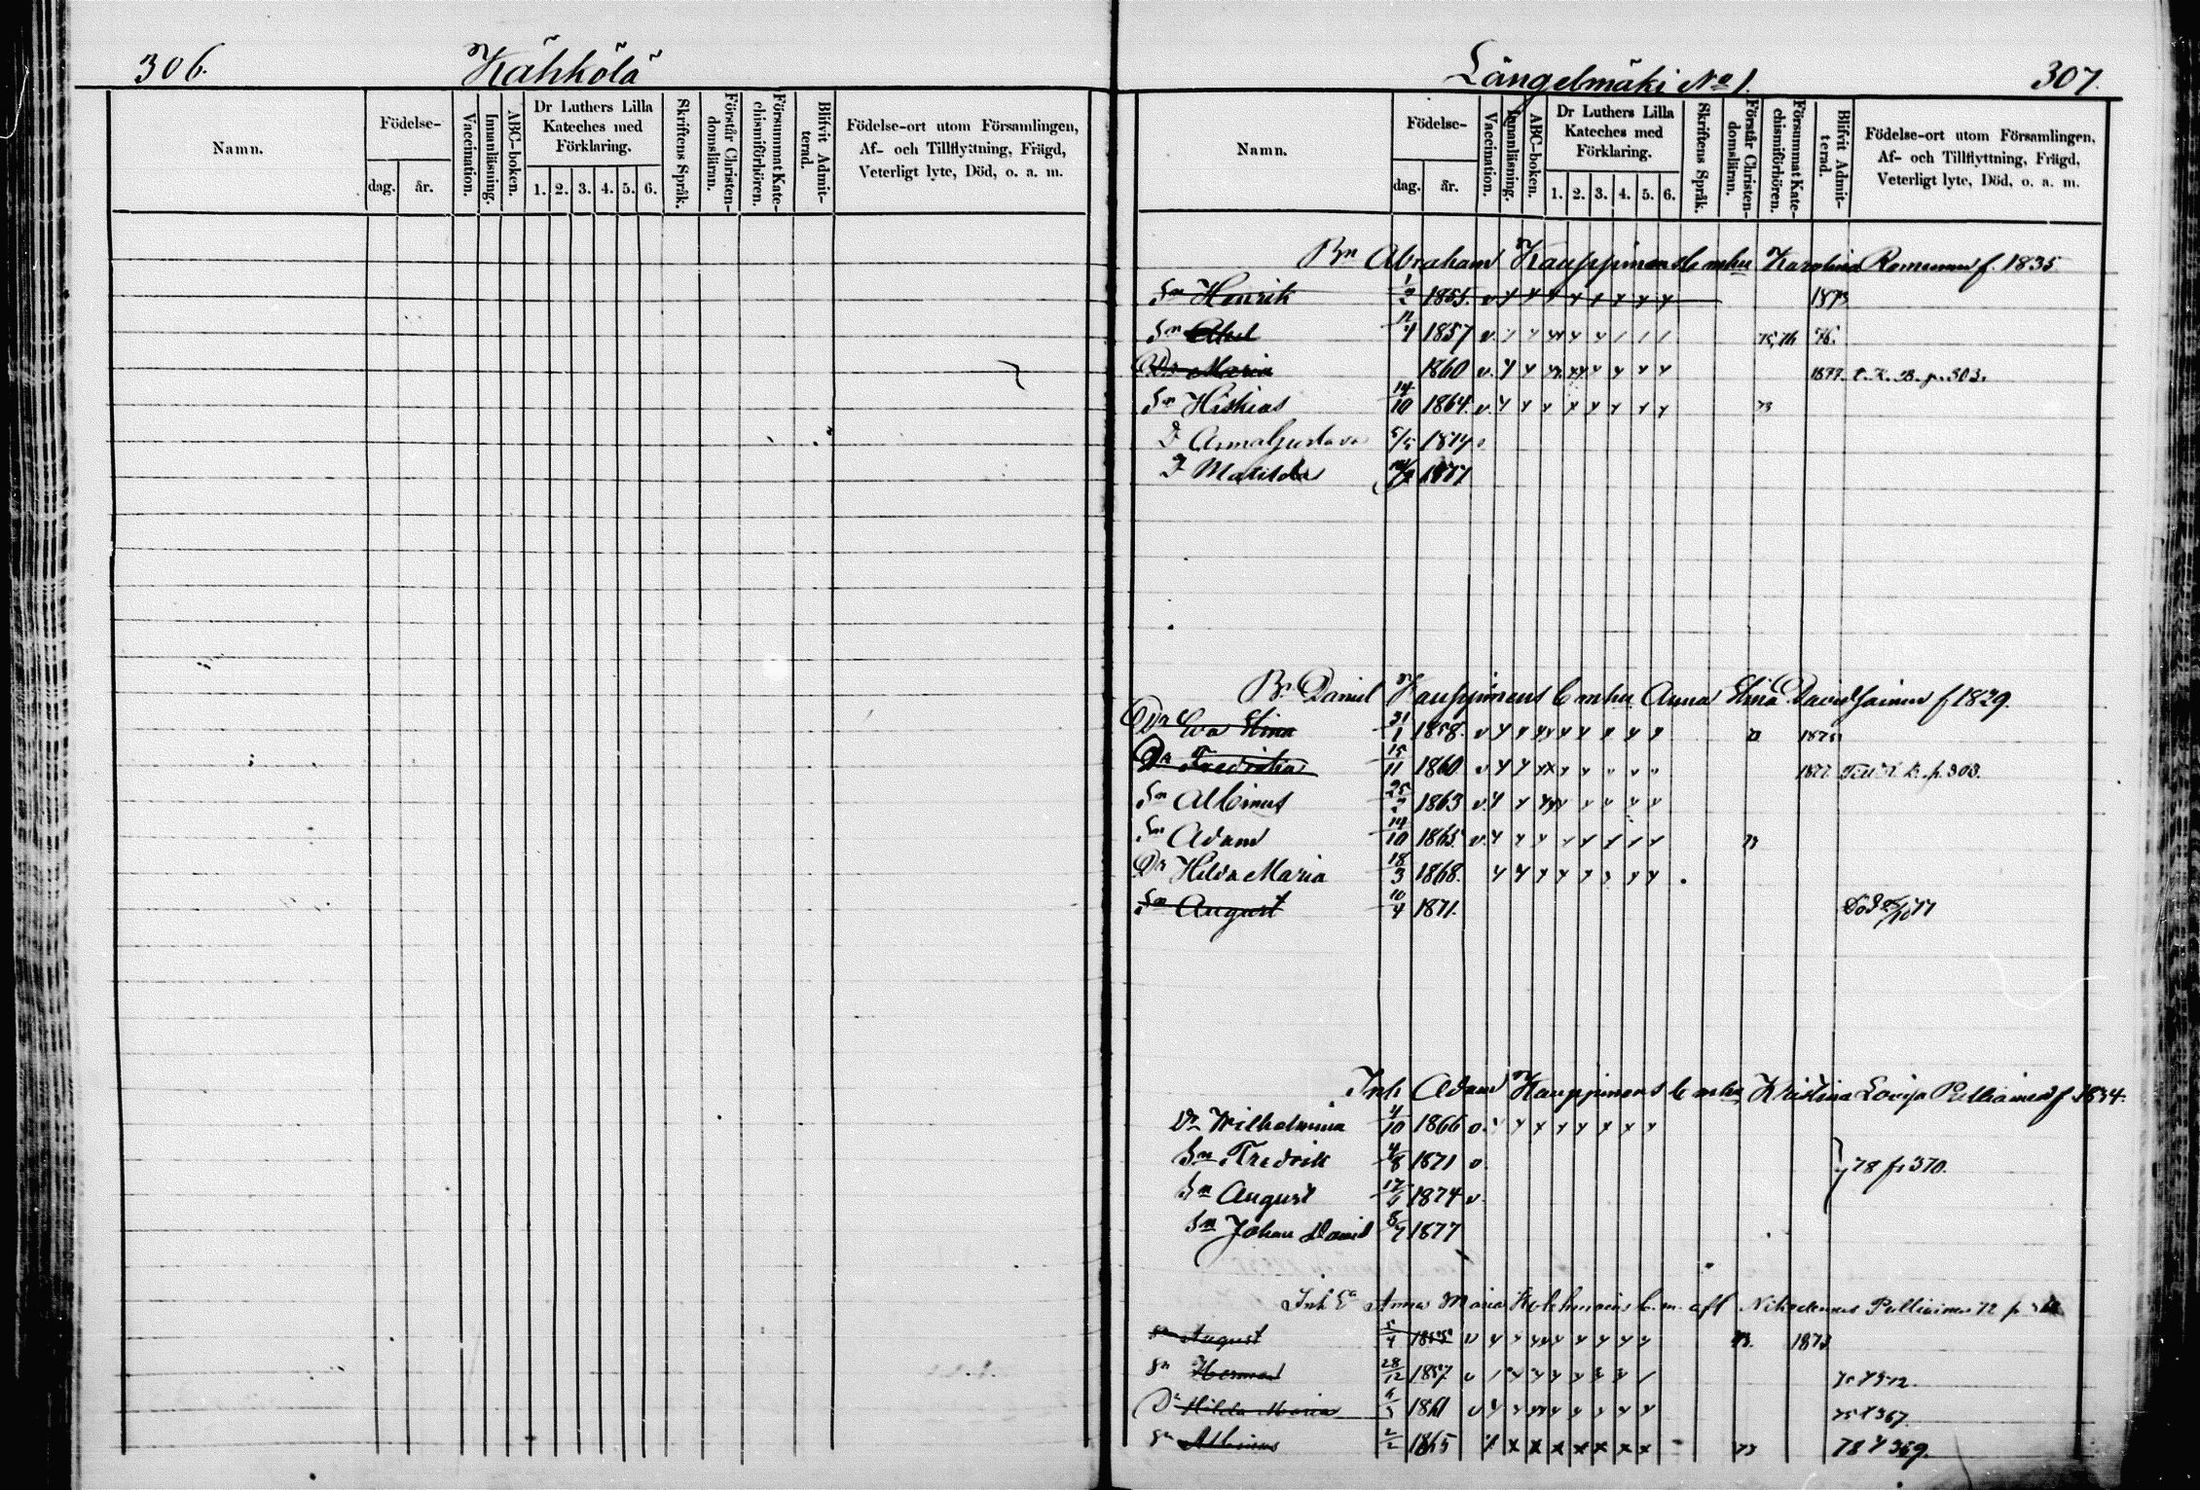 306.
Kähkölä
Namn.
Födelse-
dag. år.
Vaccination.
Innanläsning.
ABC-boken.
Dr Luthers Lilla Kateches med Förklaring.
1. 2. 3. 4. 5. 6.
Skriftens Språk.
Förstår Christendomsläran.
Försummat Katechismiförhören.
Blifvit Admitterad.
Födelse-ort utom Församlingen,
Af- och Tillflyttning, Frägd,
Veterligt lyte, Död, o. a. m.
Längelmäki No 1.
307.
Namn.
Födelse-
dag. år.
Vaccination.
Innanläsning.
ABC-boken.
Dr Luthers Lilla Kateches med Förklaring.
1. 2. 3. 4. 5. 6.
Skriftens Språk.
Förstår Christendomsläran.
Försummat Katechismiförhören.
Blifvit Admitterad.
Födelse-ort utom Församlingen,
Af- och Tillflyttning, Frägd,
Veterligt lyte, Död, o. a. m.
Bn Abraham Kauppinens b m hu Karolina f. 1835
Sn Henrik 1855 v 1873
Sn Abel 1857 v 75,76 76.
Dr Maria 1860 v. 1877. p. 303.
Sn Hiskias 14/10 1864 v 73
D Anna Gustava 5/5 1874 v
D Matilda 1877
Bn Daniel Kauppinens b m hu Anna Elina Davidsainen f 1829.
Dr Eva Elina 21/1 1858. v 1875
Dr Fredrika 15/11 1860 v 1877. p. 303.
Sn Albinus 25/2 1863 v
Sn Adam 14/10 1865 v. 73
Dr Hilda Maria 18/3 1868.
Sn August 10/4 1871. Död 77
Inh Adam Kauppinens b m hu Kristina Lovisa Pulliainen f. 1834.
Dr Wilhelmina 4/10 1866 v.
Sn Fredrik 4/8 1871 v. } 78 p. 370.
Sn August 1874 v.
Sn Johan David 1877
Inh Ea Anna Maria b. m. aft Nikodemus Pulliainen 72 p.
Sn August 5/4 1855 v 73. 1873
Sn Herman 28/12 1857 v
Dr Hilda Maria 1861 v 75 p 367
Sn Albinus 2/2 1865 73 78 p 369.